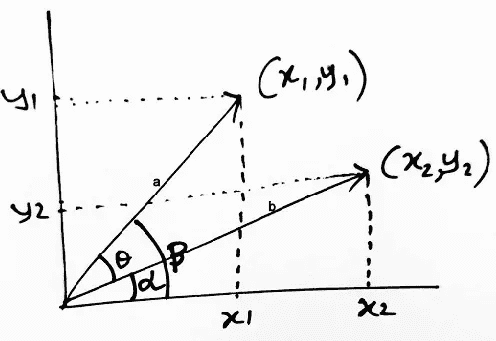 y1
(x1,y1)
a
(x2,y2)
y2
b
θ
β
α
x1
x2